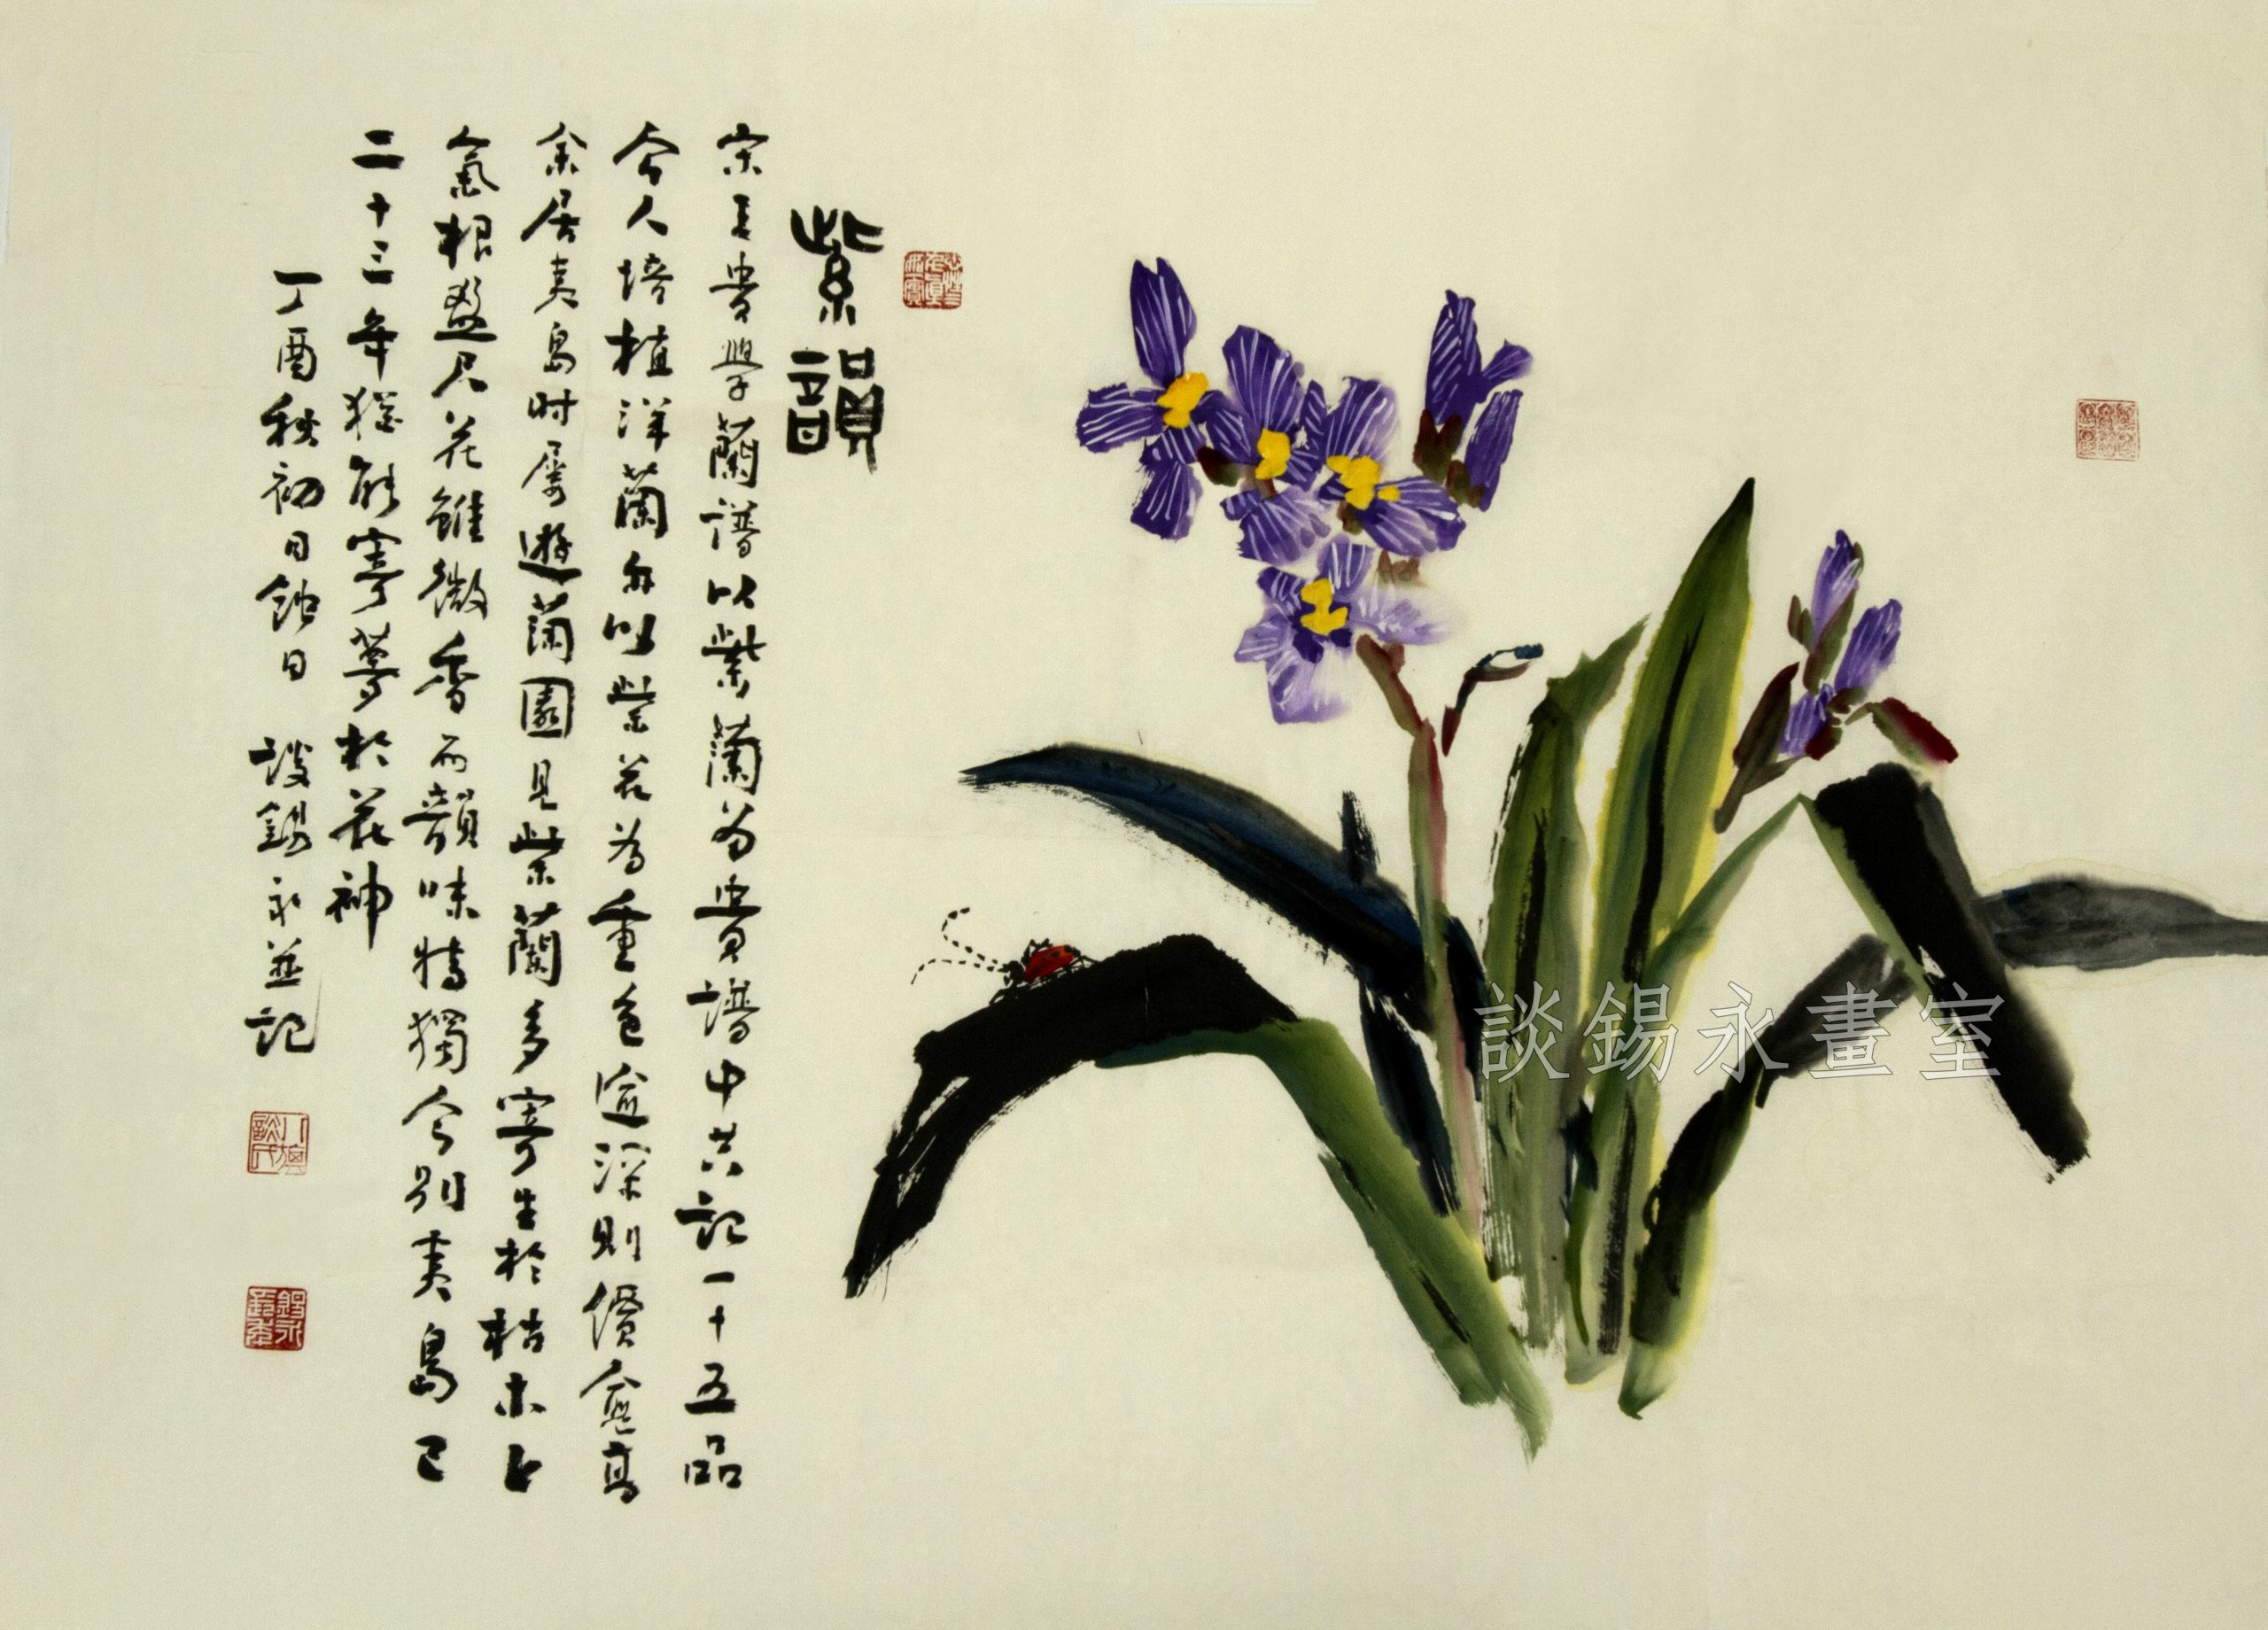 紫韻
宋王貴學蘭譜以紫蘭為貴譜中共記一十五品
今人培植洋蘭亦以紫花為重色逾深則價愈高
余居夷島時屢遊蘭園見紫蘭多寄生於枯木上
氣根盈尺花雖微香而韻味特獨今別夷島已
二十三年猶能寄夢於花神
丁酉秋初日蝕日 談錫永並記
談錫永畫室